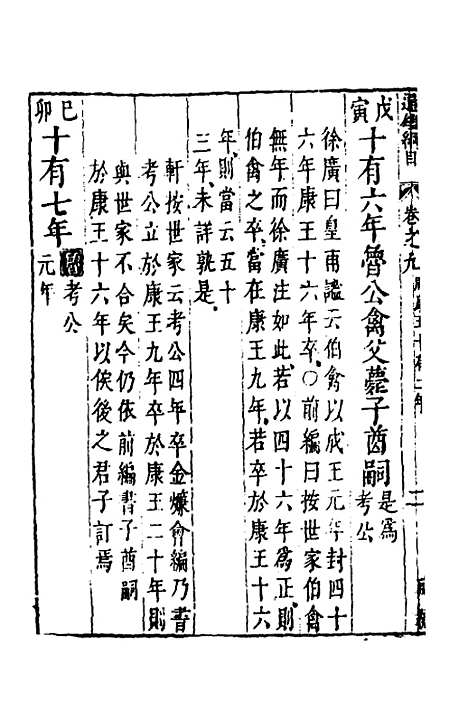 通鑑綱目 卷之九 二
戊寅十有六年魯公禽父薨子酋嗣是爲考公
徐廣曰皇甫謐云伯禽以成王元年封四十
六年康王十六年卒○前編曰按世家伯禽
無年而徐廣注如此若以四十六年爲正則
伯禽之卒當在康王九年若卒於康王十六
年則當云五十
三年未詳孰是
軒按世家云考公四年卒金爌會編乃書
考公立於康王九年卒於康王二十年則
與世家不合矣今仍依前編書子酋嗣
於康王十六年以俟後之君子訂焉
己卯十有七年考公元年